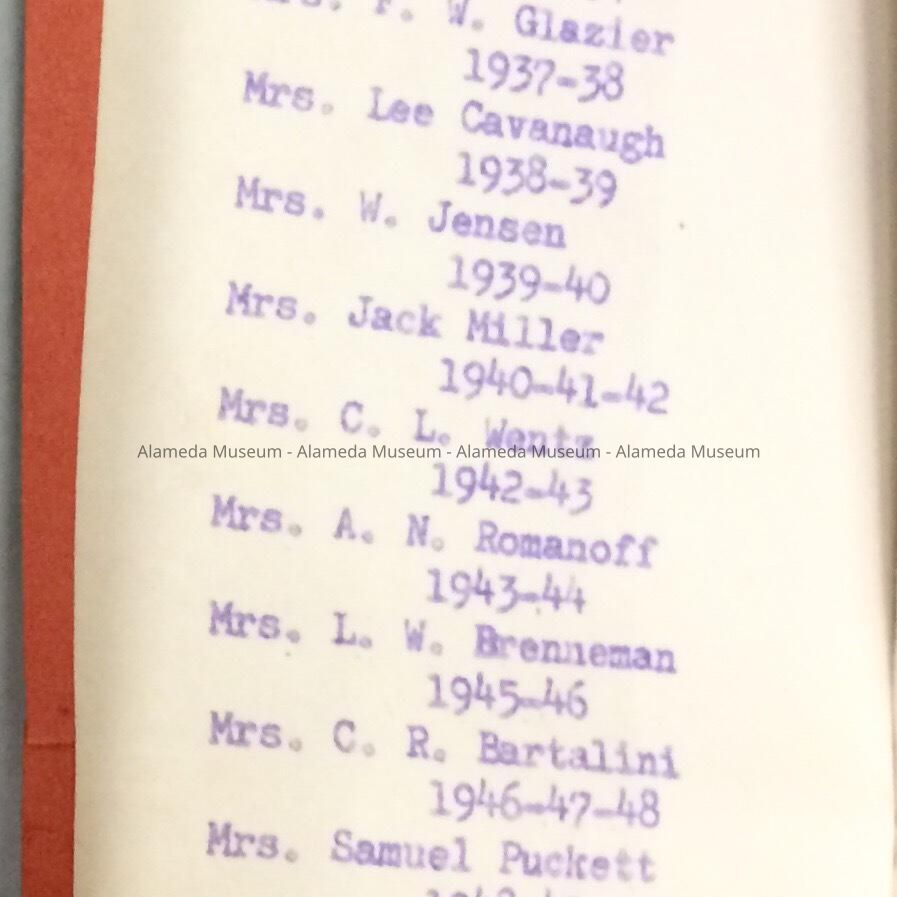 F. W. Glazier
1937-38
Mrs. Lee Cavanaugh
1938-39
Mrs. W. Jensen
1939-40
Mrs. Jack Miller
1940-41-42
Mrs. C. L. Wentz
Alameda Museum - Alameda Museum - Alameda Museum - Alameda Museum
1942-43
Mrs. A. N. Romanoff
1943-44
Mrs. L. W. Brenneman
1945-46
Mrs. C. R. Bartalini
1946-47-48
Mrs. Samuel Puckett